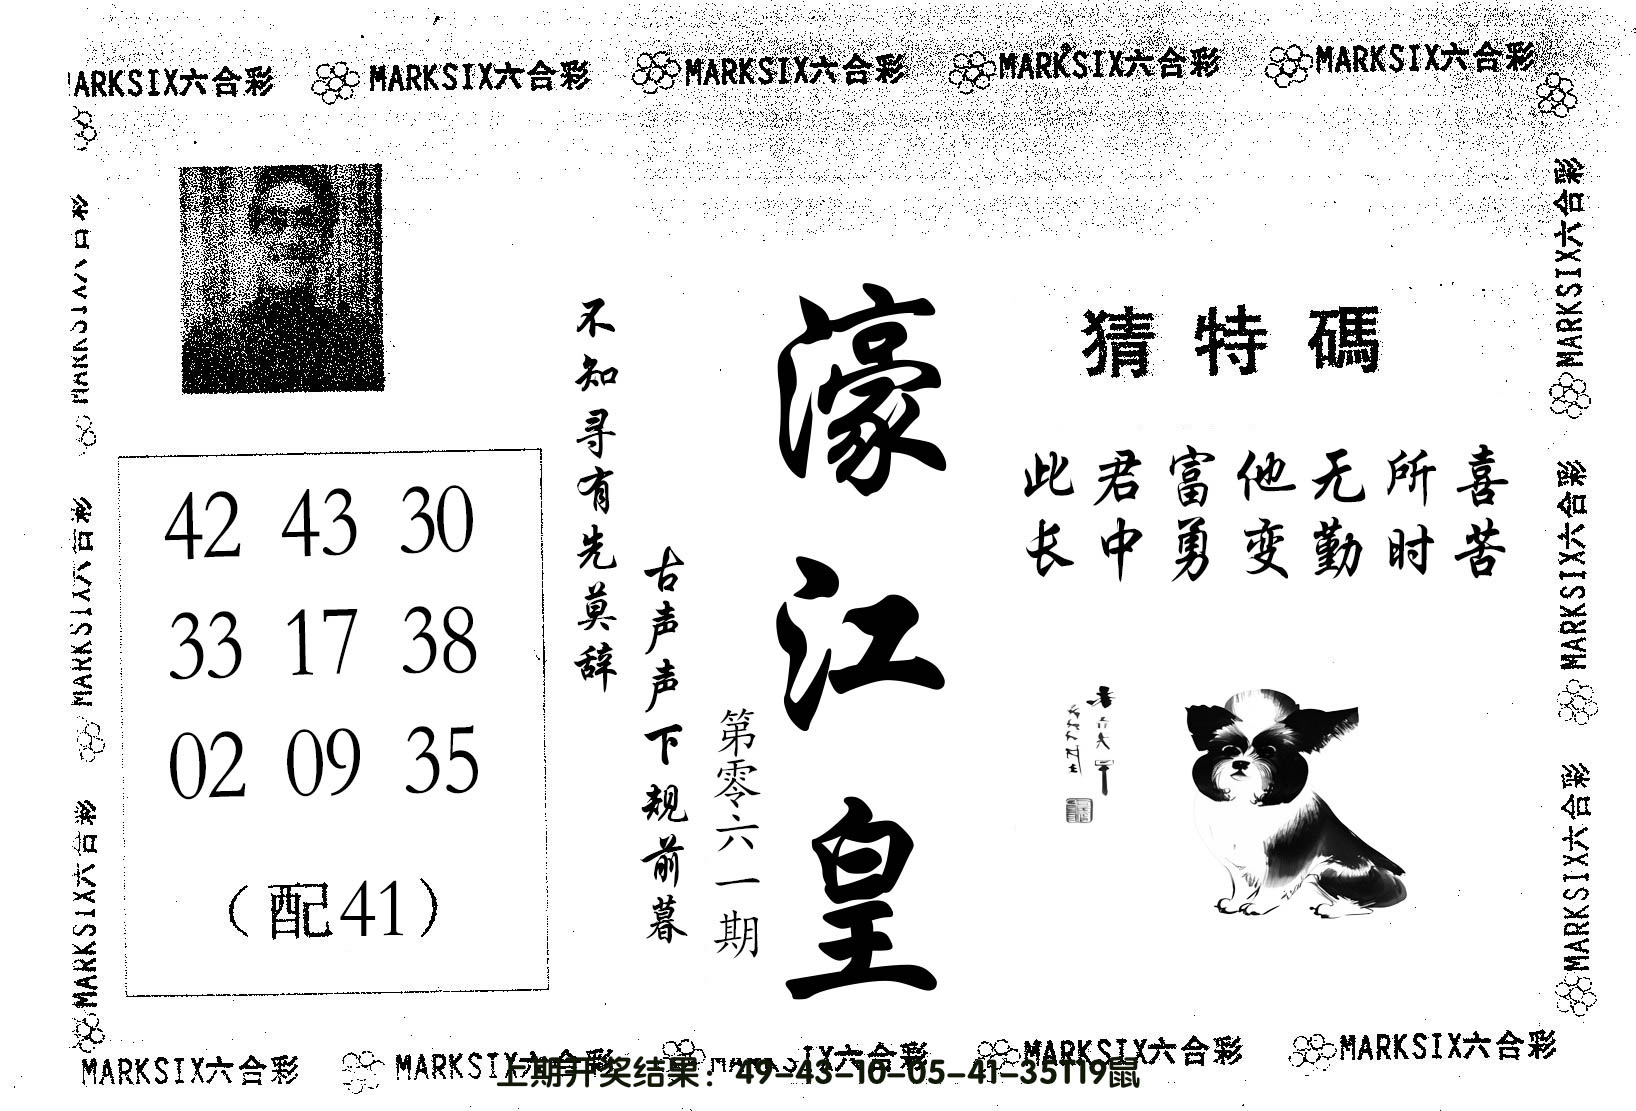 MARKSIX六合彩 MARKSIX六合彩 MARKSIX六合彩 MARKSIX六合彩 MARKSIX六合彩
猜特碼
此君富他无所喜
长中勇变勤时苦
濠江皇
第零六一期
古声声下规前暮
不知寻有先莫辞
42 43 30
33 17 38
02 09 35
（配41）
MARKSIX六合彩
MARKSIX六合彩
MARKSIX六合彩
MARKSIX六合彩
MARKSIX六合彩
MARKSIX六合彩
MARKSIX六合彩 MARKSIX六合彩 IX六合彩 MARKSIX六合彩 MARKSIX六合彩
上期开奖结果：49-43-10-05-41-35T19鼠